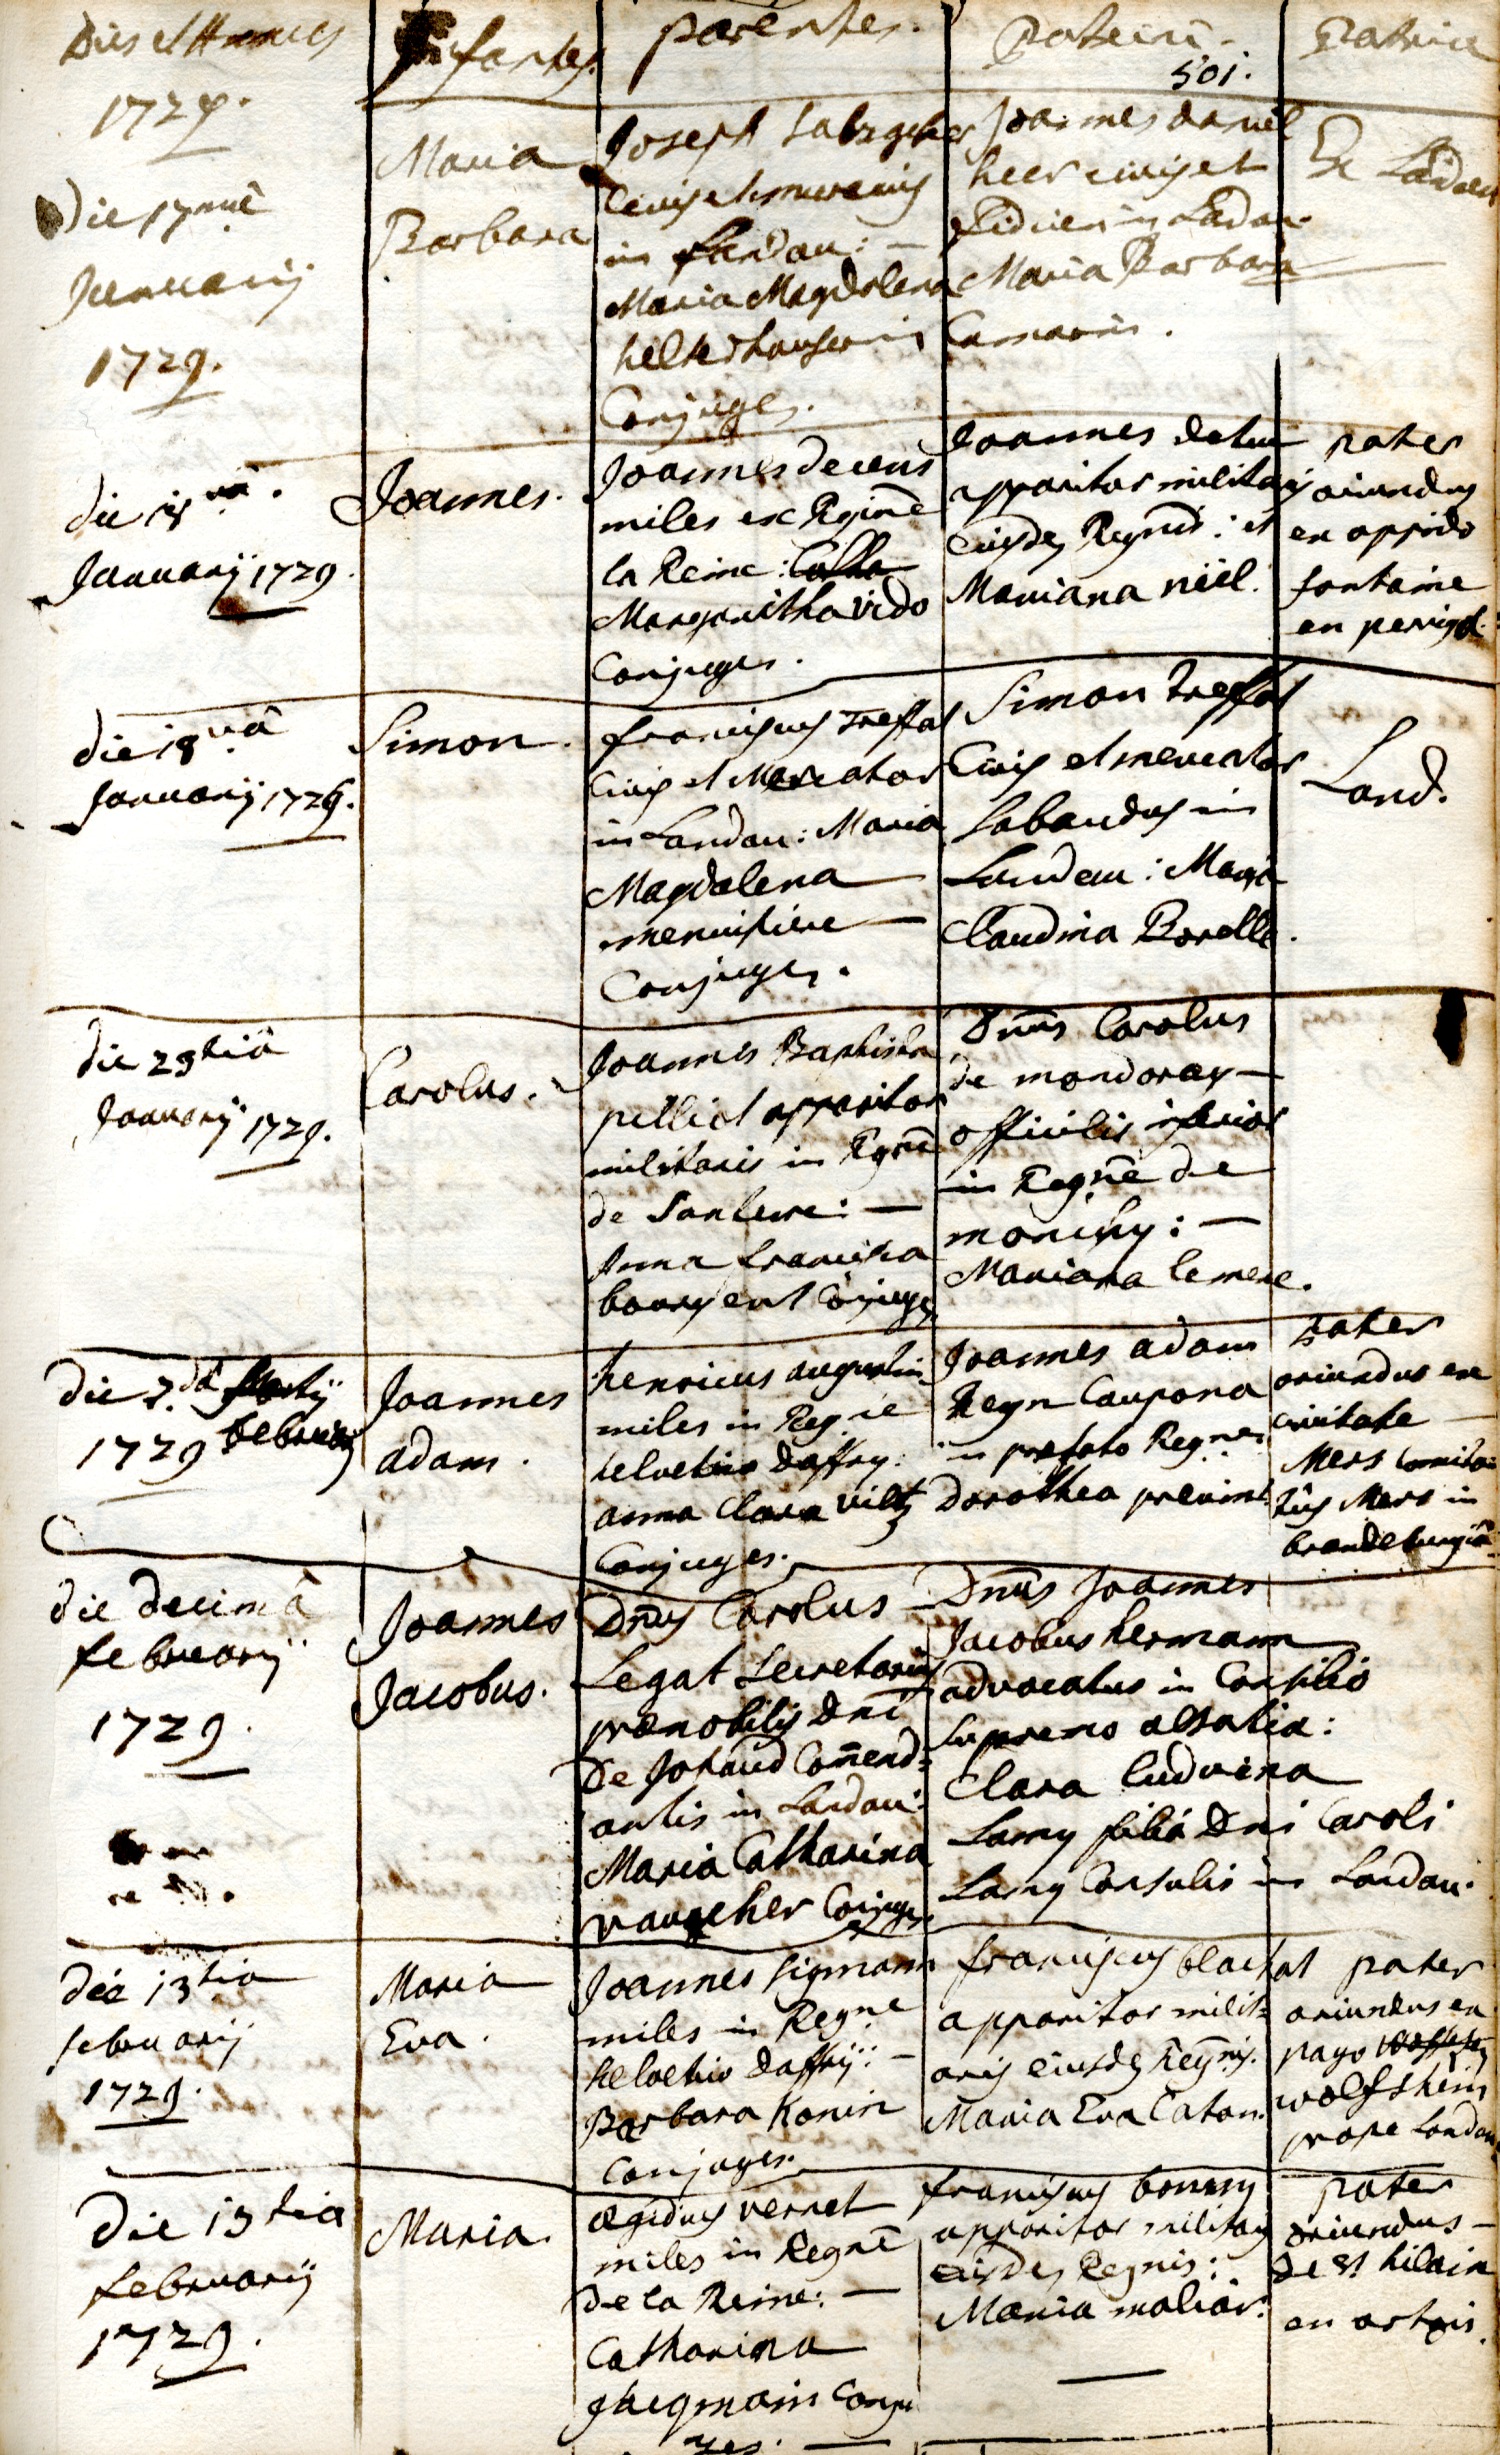 Dies et Annus
1729.
Infantes.
parentes.
Patrini.
501.
Patria
die 17mâ
Januarij
1729.
Maria
Barbara
Joseph
Civis et murarius
in Landau: —
Maria Magdalena
Conjuges.
Joannes Daniel
heer civis et
in Landau
Maria Barbara
Ex Landau
die 18vâ.
Januarij 1729.
Joannes.
Joannes decens
miles ex Regimē
la Reine:
Margaritha vido
Conjuges.
Joannes
apparitor militaris
eiusdem Regnis: et
Mariana niel.
pater
oriundus
ex oppido
fontaine
en perrigd.
die 18vâ
Januarij 1729.
Simon.
franciscus Treffal
Civis et Mercator
in Landau: Maria
Magdalena
menuisiere —
Conjuges.
Simon Treffal
Civis et mercator
Sabaudus in
Landau: Maria
Claudina Borella.
Land.
die 23tiâ
Januarij 1729.
Carolus.
Joannes Baptista
pelliot apparitor
militaris in Regnē
de Santerre: —
Anna francisca
Conjuges
Dnus Carolus
de mondoray —
officialis inferior
in Regnē de
monchy: —
Mariana lemere.
die 2dâ
1729 februarij
Joannes
adam.
henricus augustin
miles in Regne
helvetico Daffry:
anna Clara viltz
Conjuges.
Joannes adam
heyn Caupona
in prefato Regne
Dorothea
pater
oriundus ex
civitate —
Mers comita-
tus Mers in
brandeburgiâ.
die decimâ
februarij
1729.
Joannes
Jacobus.
Dnus Carolus
Legat Secretarius
praenobilis Dni
De Johaud Comend-
antis in Landau:
Maria Catharina
vaucher Conjuges.
Dnus Joannes
Jacobus hermann
advocatus in Consilio
Supremo alsatia:
Clara ludvina
Lamy filia Dni Caroli
Lamy Consulis in Landau.
die 13tia
februarij
1729.
Maria
Eva.
Joannes sigmann
miles in Regne
helvetico Daffrij: —
Barbara Konin
conjuges.
franciscus blachat
apparitor milit-
aris eiusdem Regnis.
Maria Eva Caton.
pater
oriundus ex
pago
wolfsheim
prope Landau
Die 13tia
februarij
1729.
Maria.
aegidius verret
miles in Regnē
de la Reine: —
Catharina
Jacqmain Conju
ges. —
franciscus
apparitor militaris
eiusdem Regnis:
Maria moliar.
pater
oriundus —
de st hilaire
en artois.